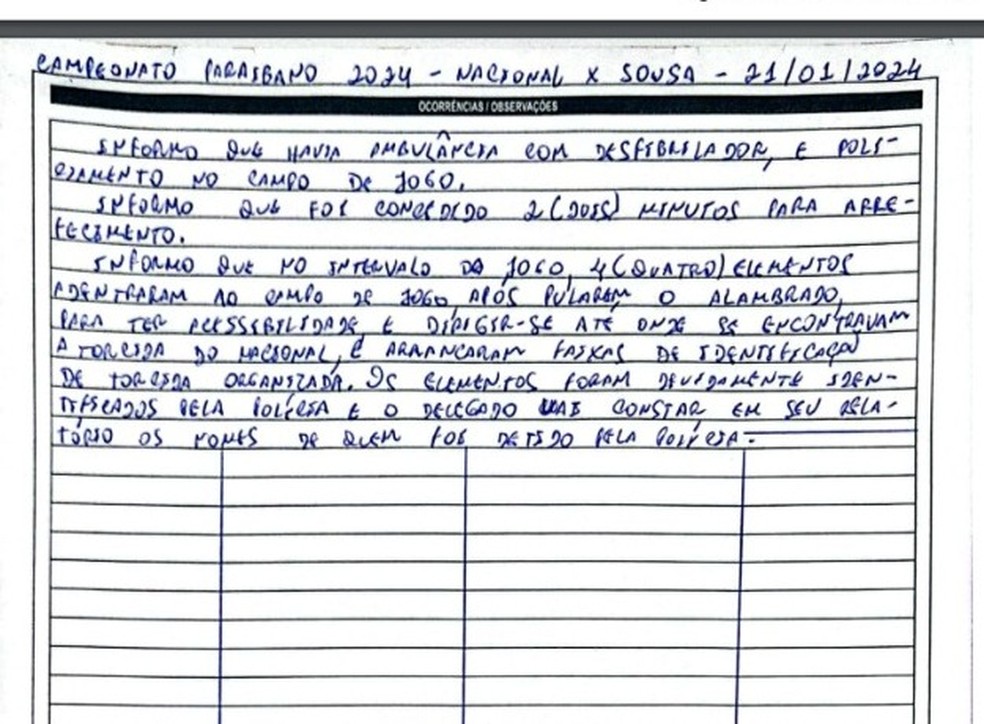 CAMPEONATO PARAIBANO 2024 - NACIONAL X SOUSA - 21/01/2024
OCORRÊNCIAS / OBSERVAÇÕES
INFORMO QUE HAVIA AMBULÂNCIA COM DESFIBRILADOR, E POLI-
CIAMENTO NO CAMPO DE JOGO.
INFORMO QUE FOI CONCEDIDO 2 (DOIS) MINUTOS PARA ARRE-
FECIMENTO.
INFORMO QUE NO INTERVALO DO JOGO, 4 (QUATRO) ELEMENTOS
ADENTRARAM AO CAMPO DE JOGO, APÓS PULAREM O ALAMBRADO,
PARA TER ACESSIBILIDADE, E DIRIGIR-SE ATÉ ONDE SE ENCONTRAVAM
A TORCIDA DO NACIONAL, E ARRANCARAM FAIXAS DE IDENTIFICAÇÃO
DE TORCIDA ORGANIZADA. OS ELEMENTOS FORAM DEVIDAMENTE IDEN-
TIFICADOS PELA POLÍCIA E O DELEGADO VAI CONSTAR EM SEU RELA-
TÓRIO OS NOMES DE QUEM FOI DETIDO PELA POLÍCIA.